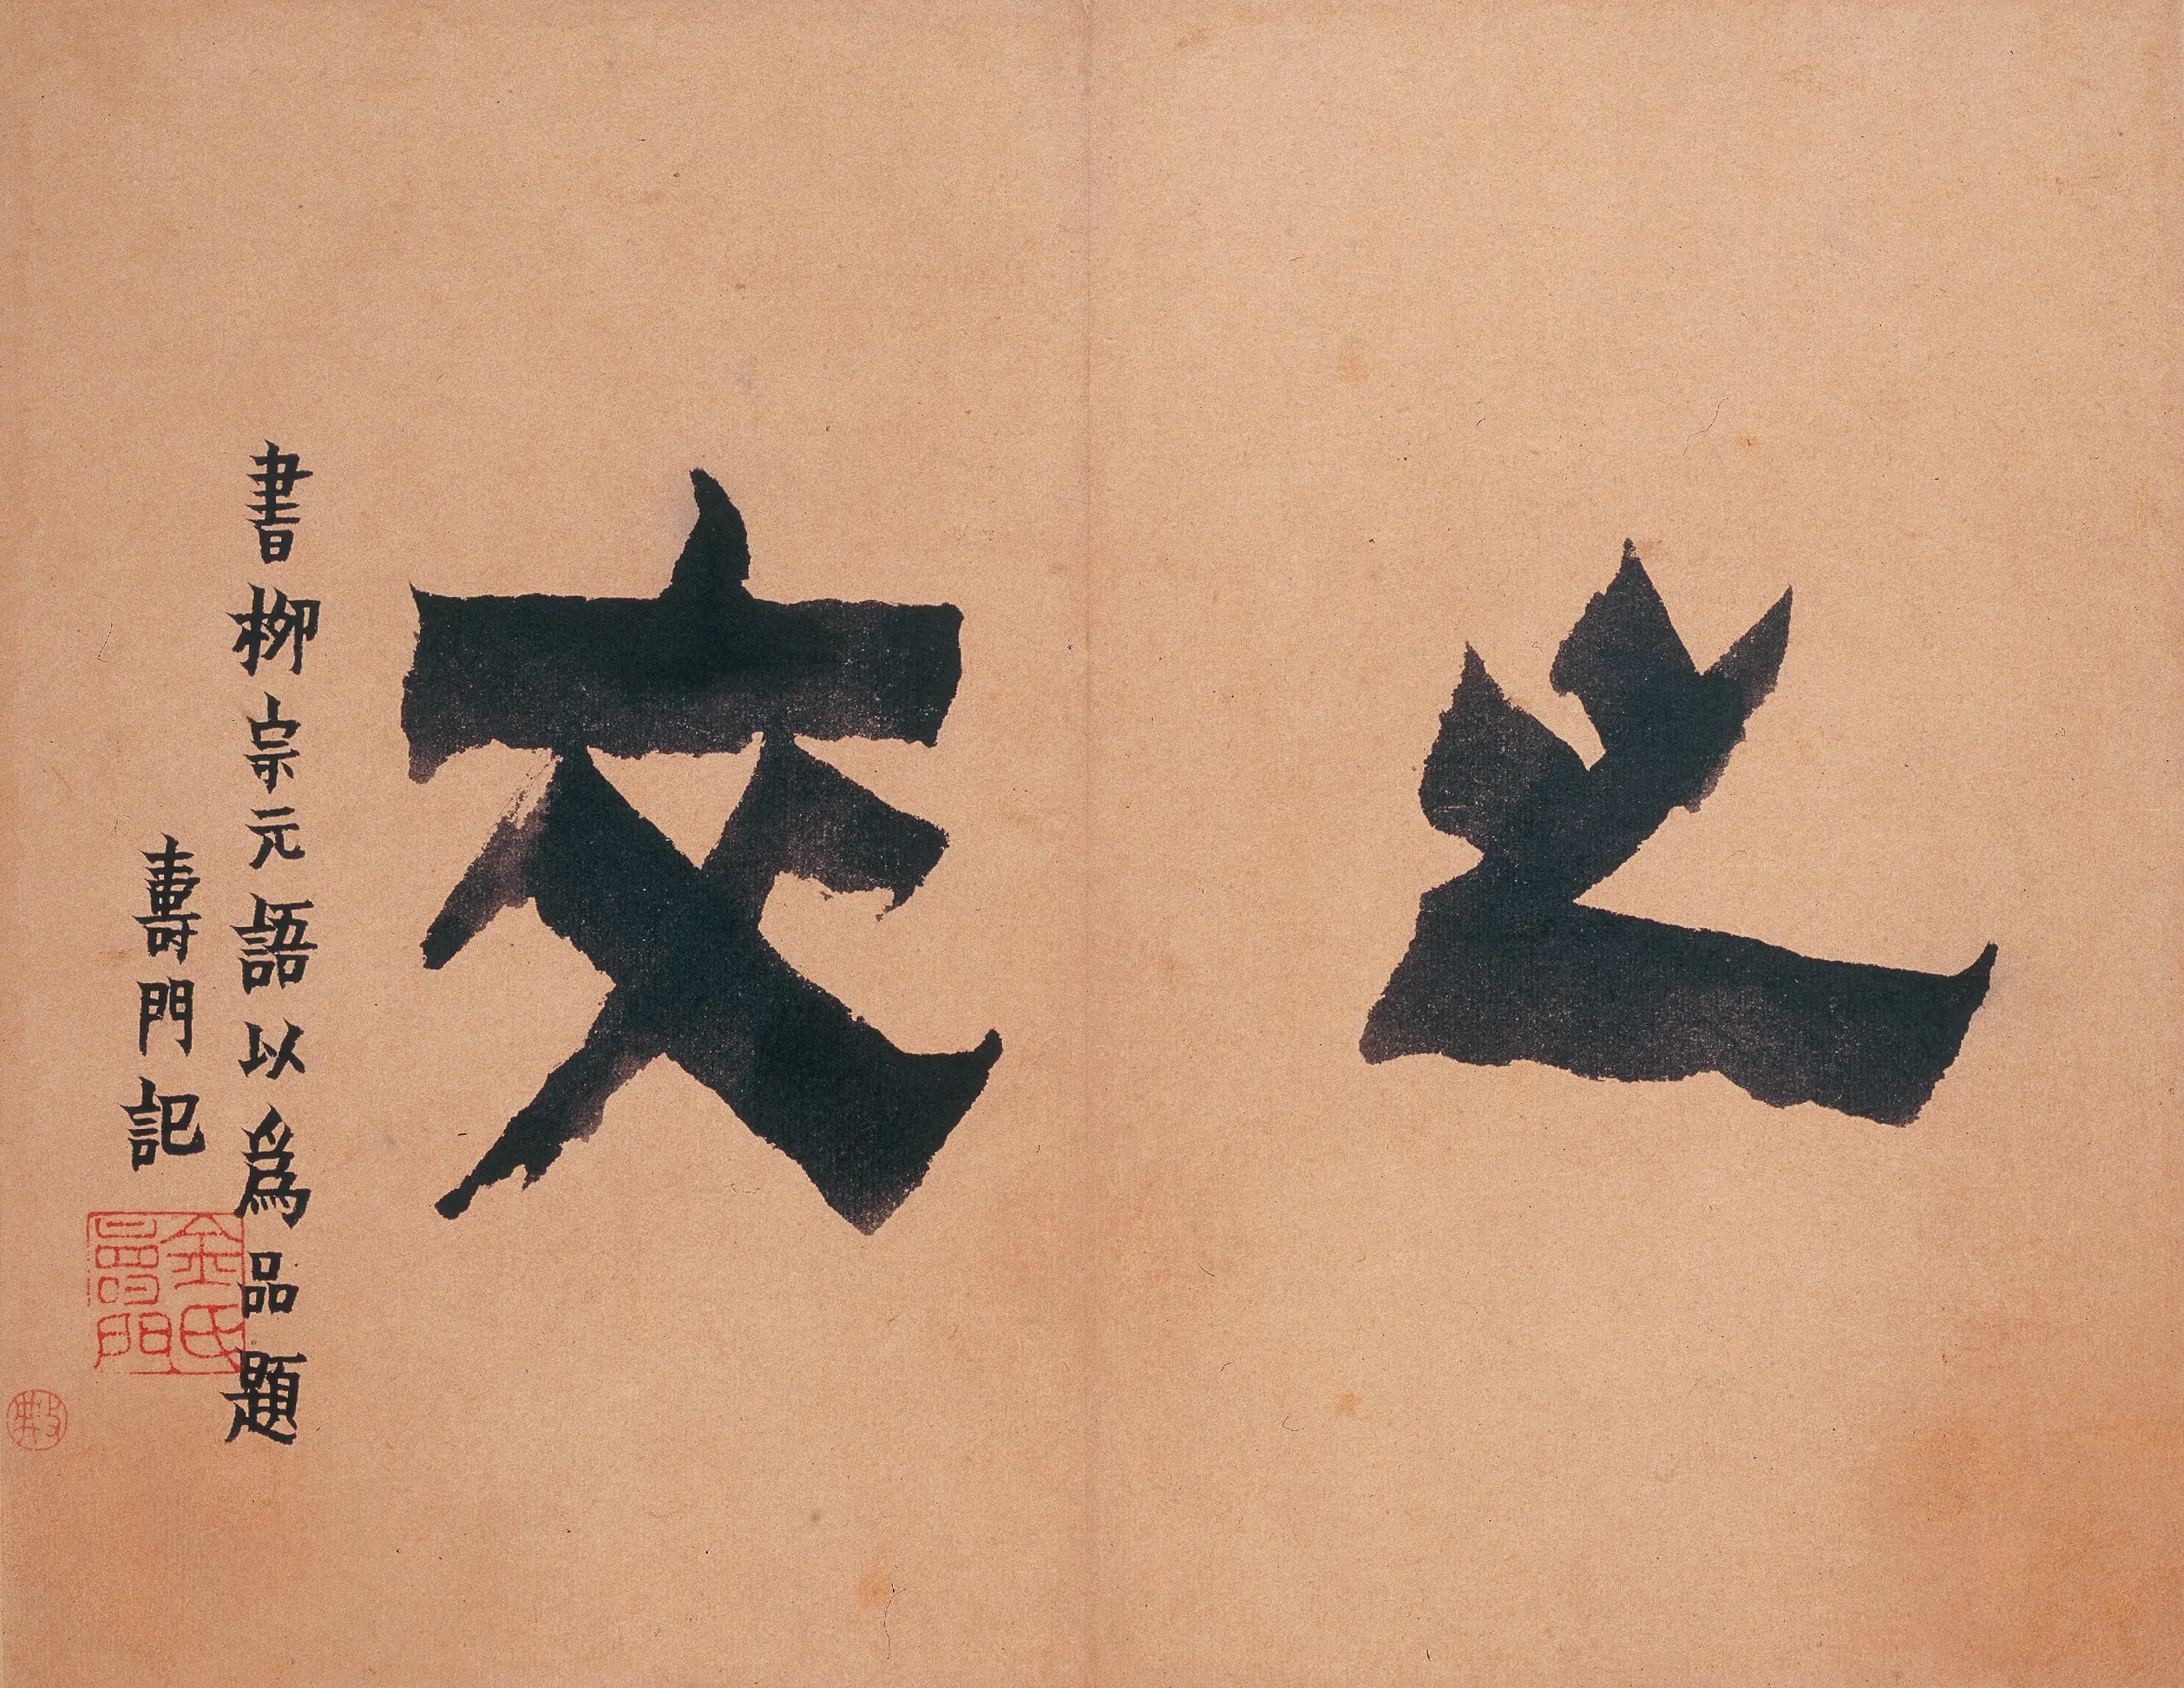 之交
書栁宗元語以爲品題
壽門記
金氏
壽門